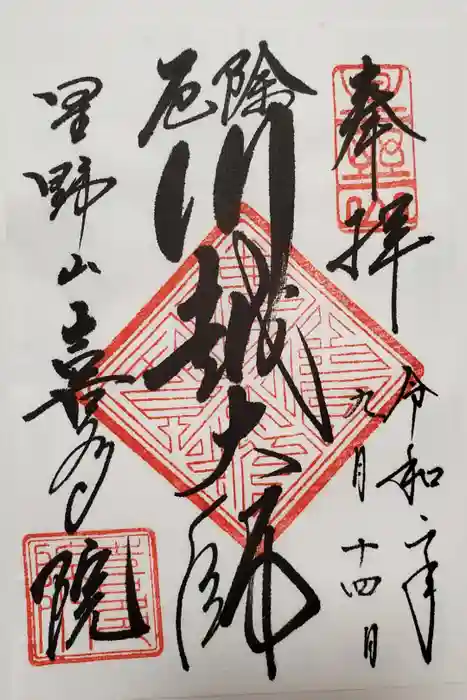 奉拝
令和二年
九月十四日
厄除
川越大師
星野山
喜多院